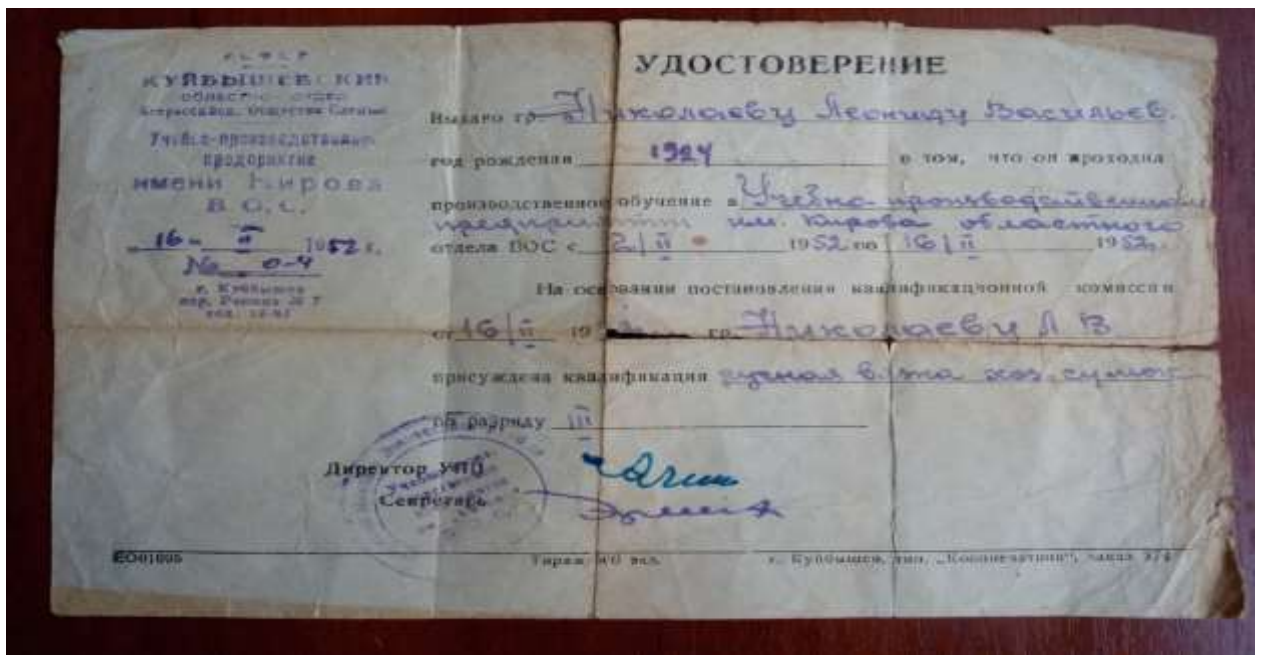 РСФСР
КУЙБЫШЕВСКИЙ
областной отдел
Всероссийск. Общества Слепых
Учебно-производственное
предприятие
имени Кирова
В.О.С.
16 - II 1952 г.
№ 0-4
г. Куйбышев
УДОСТОВЕРЕНИЕ
Выдано гр. Николаеву Леониду Васильев.
год рождения 1924 в том, что он проходил
производственное обучение в Учебно производственном
предприятии им. Кирова областного
отдела ВОС с 2/II 1952 по 16/II 1952.
На основании постановления квалификационной комиссии
от 16/II 19 гр. Николаеву Л В
присуждена квалификация хоз. сумок
по разряду III
Директор УПП
Секретарь
ЕО01005
Тираж г. Куйбышев, тип. заказ